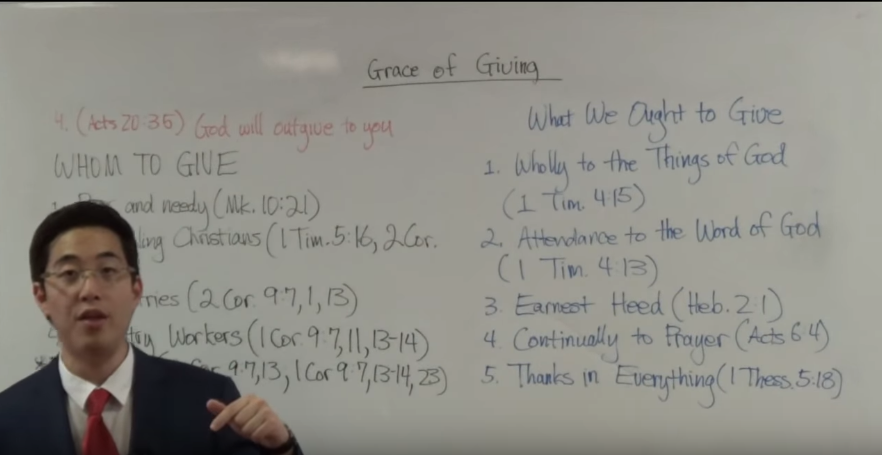 Grace of Giving
4. (Acts 20:35) God will outgive to you
WHOM TO GIVE
and needy (Mk. 10:21)
ling Christians (1 Tim. 5:16, 2 Cor.
ries (2 Cor. 9:7, 1, 13)
try Workers (1 Cor. 9:7, 11, 13-14)
9:7, 13, 1 Cor 9:7, 13-14, 23)
What We Ought to Give
1. Wholly to the Things of God
(1 Tim. 4:15)
2. Attendance to the Word of God
(1 Tim. 4:13)
3. Earnest Heed (Heb. 2:1)
4. Continually to Prayer (Acts 6:4)
5. Thanks in Everything (1 Thess. 5:18)